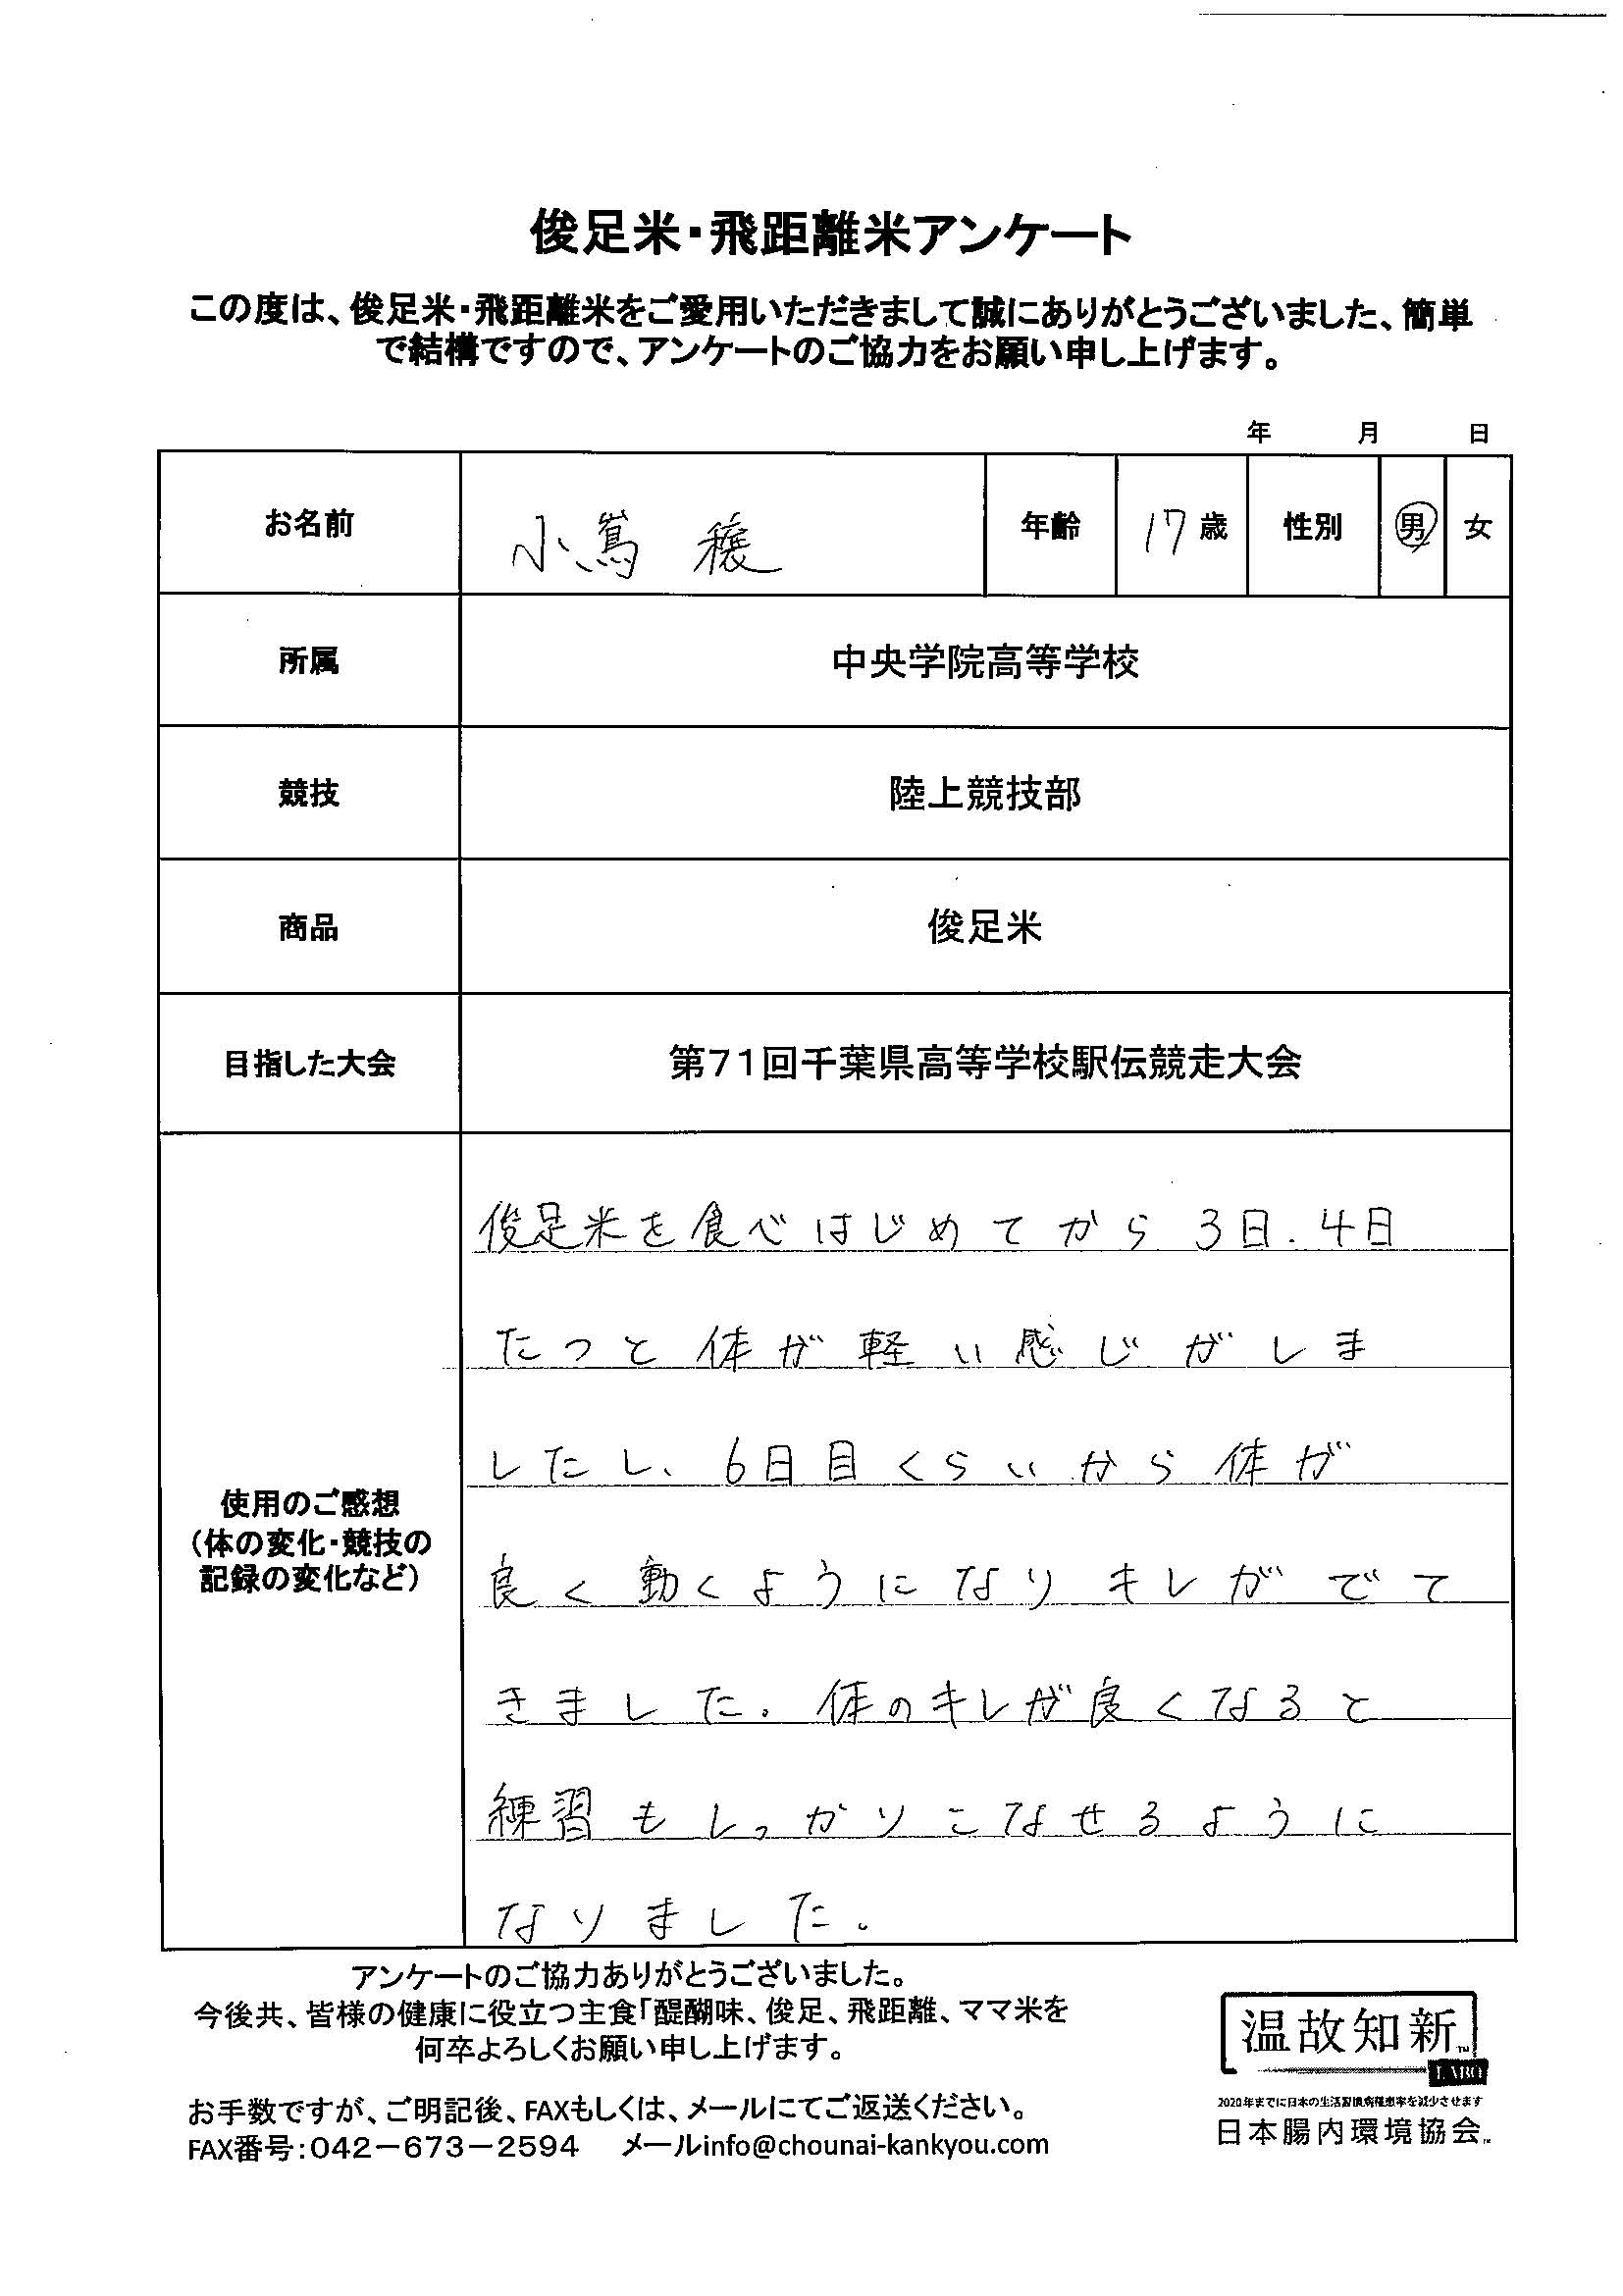 俊足米・飛距離米アンケート
この度は、俊足米・飛距離米をご愛用いただきまして誠にありがとうございました、簡単
で結構ですので、アンケートのご協力をお願い申し上げます。
年 月 日
お名前 小嶌 穣 年齢 17歳 性別 男 女
所属 中央学院高等学校
競技 陸上競技部
商品 俊足米
目指した大会 第71回千葉県高等学校駅伝競走大会
使用のご感想
(体の変化・競技の
記録の変化など)
俊足米を食べはじめてから3日.4日
たつと体が軽い感じがしま
したし、6日目くらいから体が
良く動くようになりキレがでて
きました。体のキレが良くなると
練習もしっかりこなせるように
なりました。
アンケートのご協力ありがとうございました。
今後共、皆様の健康に役立つ主食「醍醐味、俊足、飛距離、ママ米を
何卒よろしくお願い申し上げます。
お手数ですが、ご明記後、FAXもしくは、メールにてご返送ください。
FAX番号:042-673-2594 メールinfo@chounai-kankyou.com
温故知新™
LABO
2020年までに日本の生活習慣病罹患率を減少させます
日本腸内環境協会™